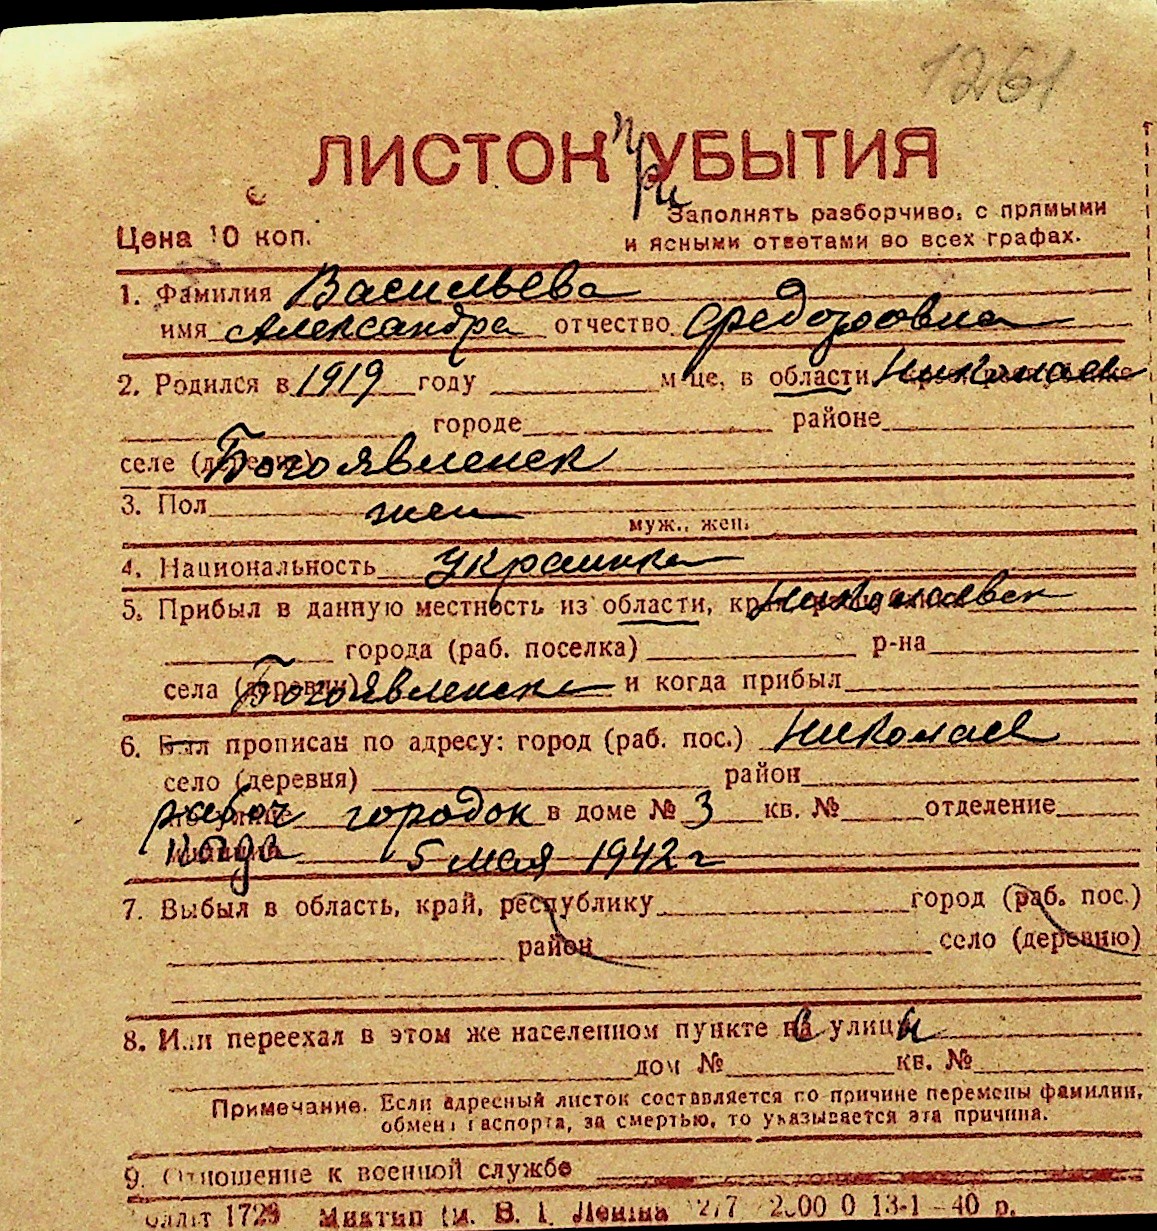 1261
ЛИСТОК при УБЫТИЯ
Заполнять разборчиво, с прямыми
Цена 10 коп.
и ясными ответами во всех графах.
1. Фамилия Васильева
имя Александра отчество Федоровна
2. Родился в 1919 году м-це, в области Николаев
городе районе
селе (деревне) Богоявленск
3. Пол жен
муж., жен.
4. Национальность украинка
5. Прибыл в данную местность из области, края, Николаевск
города (раб. поселка) р-на
села (деревни) Богоявленск и когда прибыл
6. Был прописан по адресу: город (раб. пос.) Николаев
село (деревня) район
рабоч городок в доме № 3 кв. № отделение
когда 5 мая 1942 г
7. Выбыл в область, край, республику город (раб. пос.)
район село (деревню)
8. Или переехал в этом же населенном пункте с улицы
дом № кв. №
Примечание. Если адресный листок составляется по причине перемены фамилии,
обмена паспорта, за смертью, то указывается эта причина.
9. Отношение к военной службе
1729 им. В. И. Ленина 13-1-40 р.